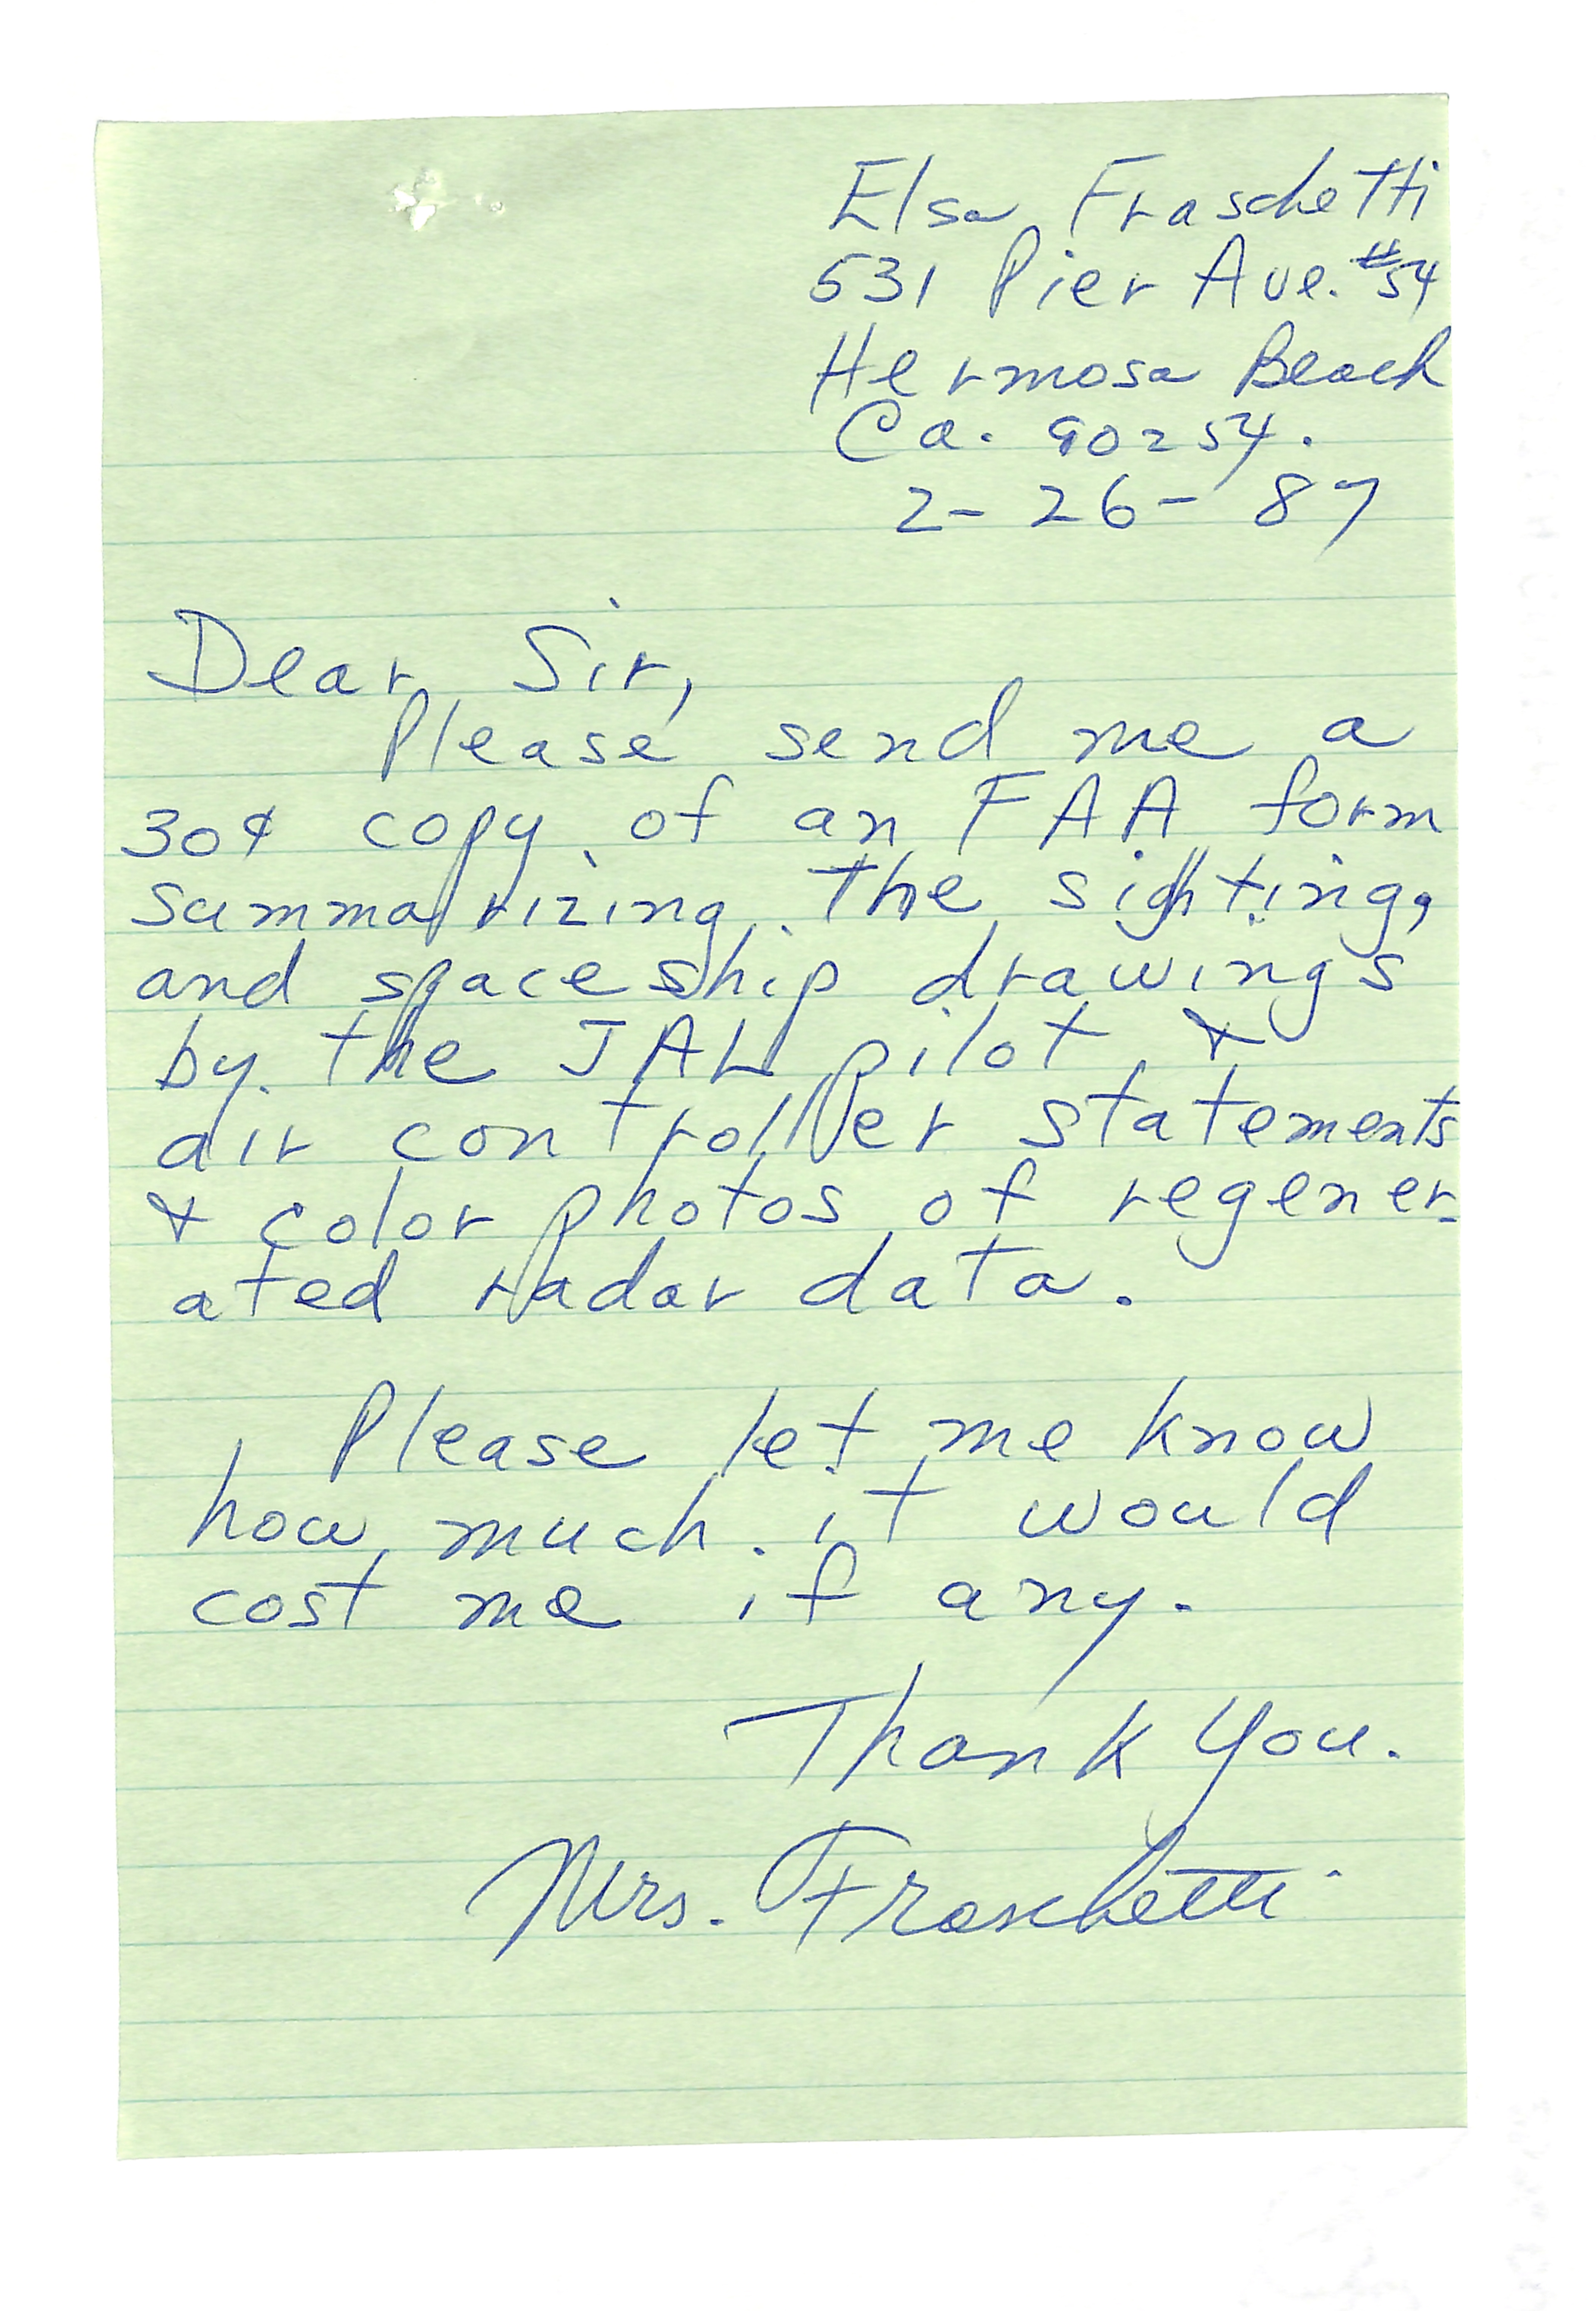 Elsa Fraschetti
531 Pier Ave. #54
Hermosa Beach
Ca. 90254.
2-26-87
Dear Sir,
Please send me a
30¢ copy of an FAA form
summarizing the sighting,
and spaceship drawings
by the JAL pilot &
air controller statements
& color photos of regener-
ated radar data.
Please let me know
how much it would
cost me if any.
Thank You.
Mrs. Fraschetti